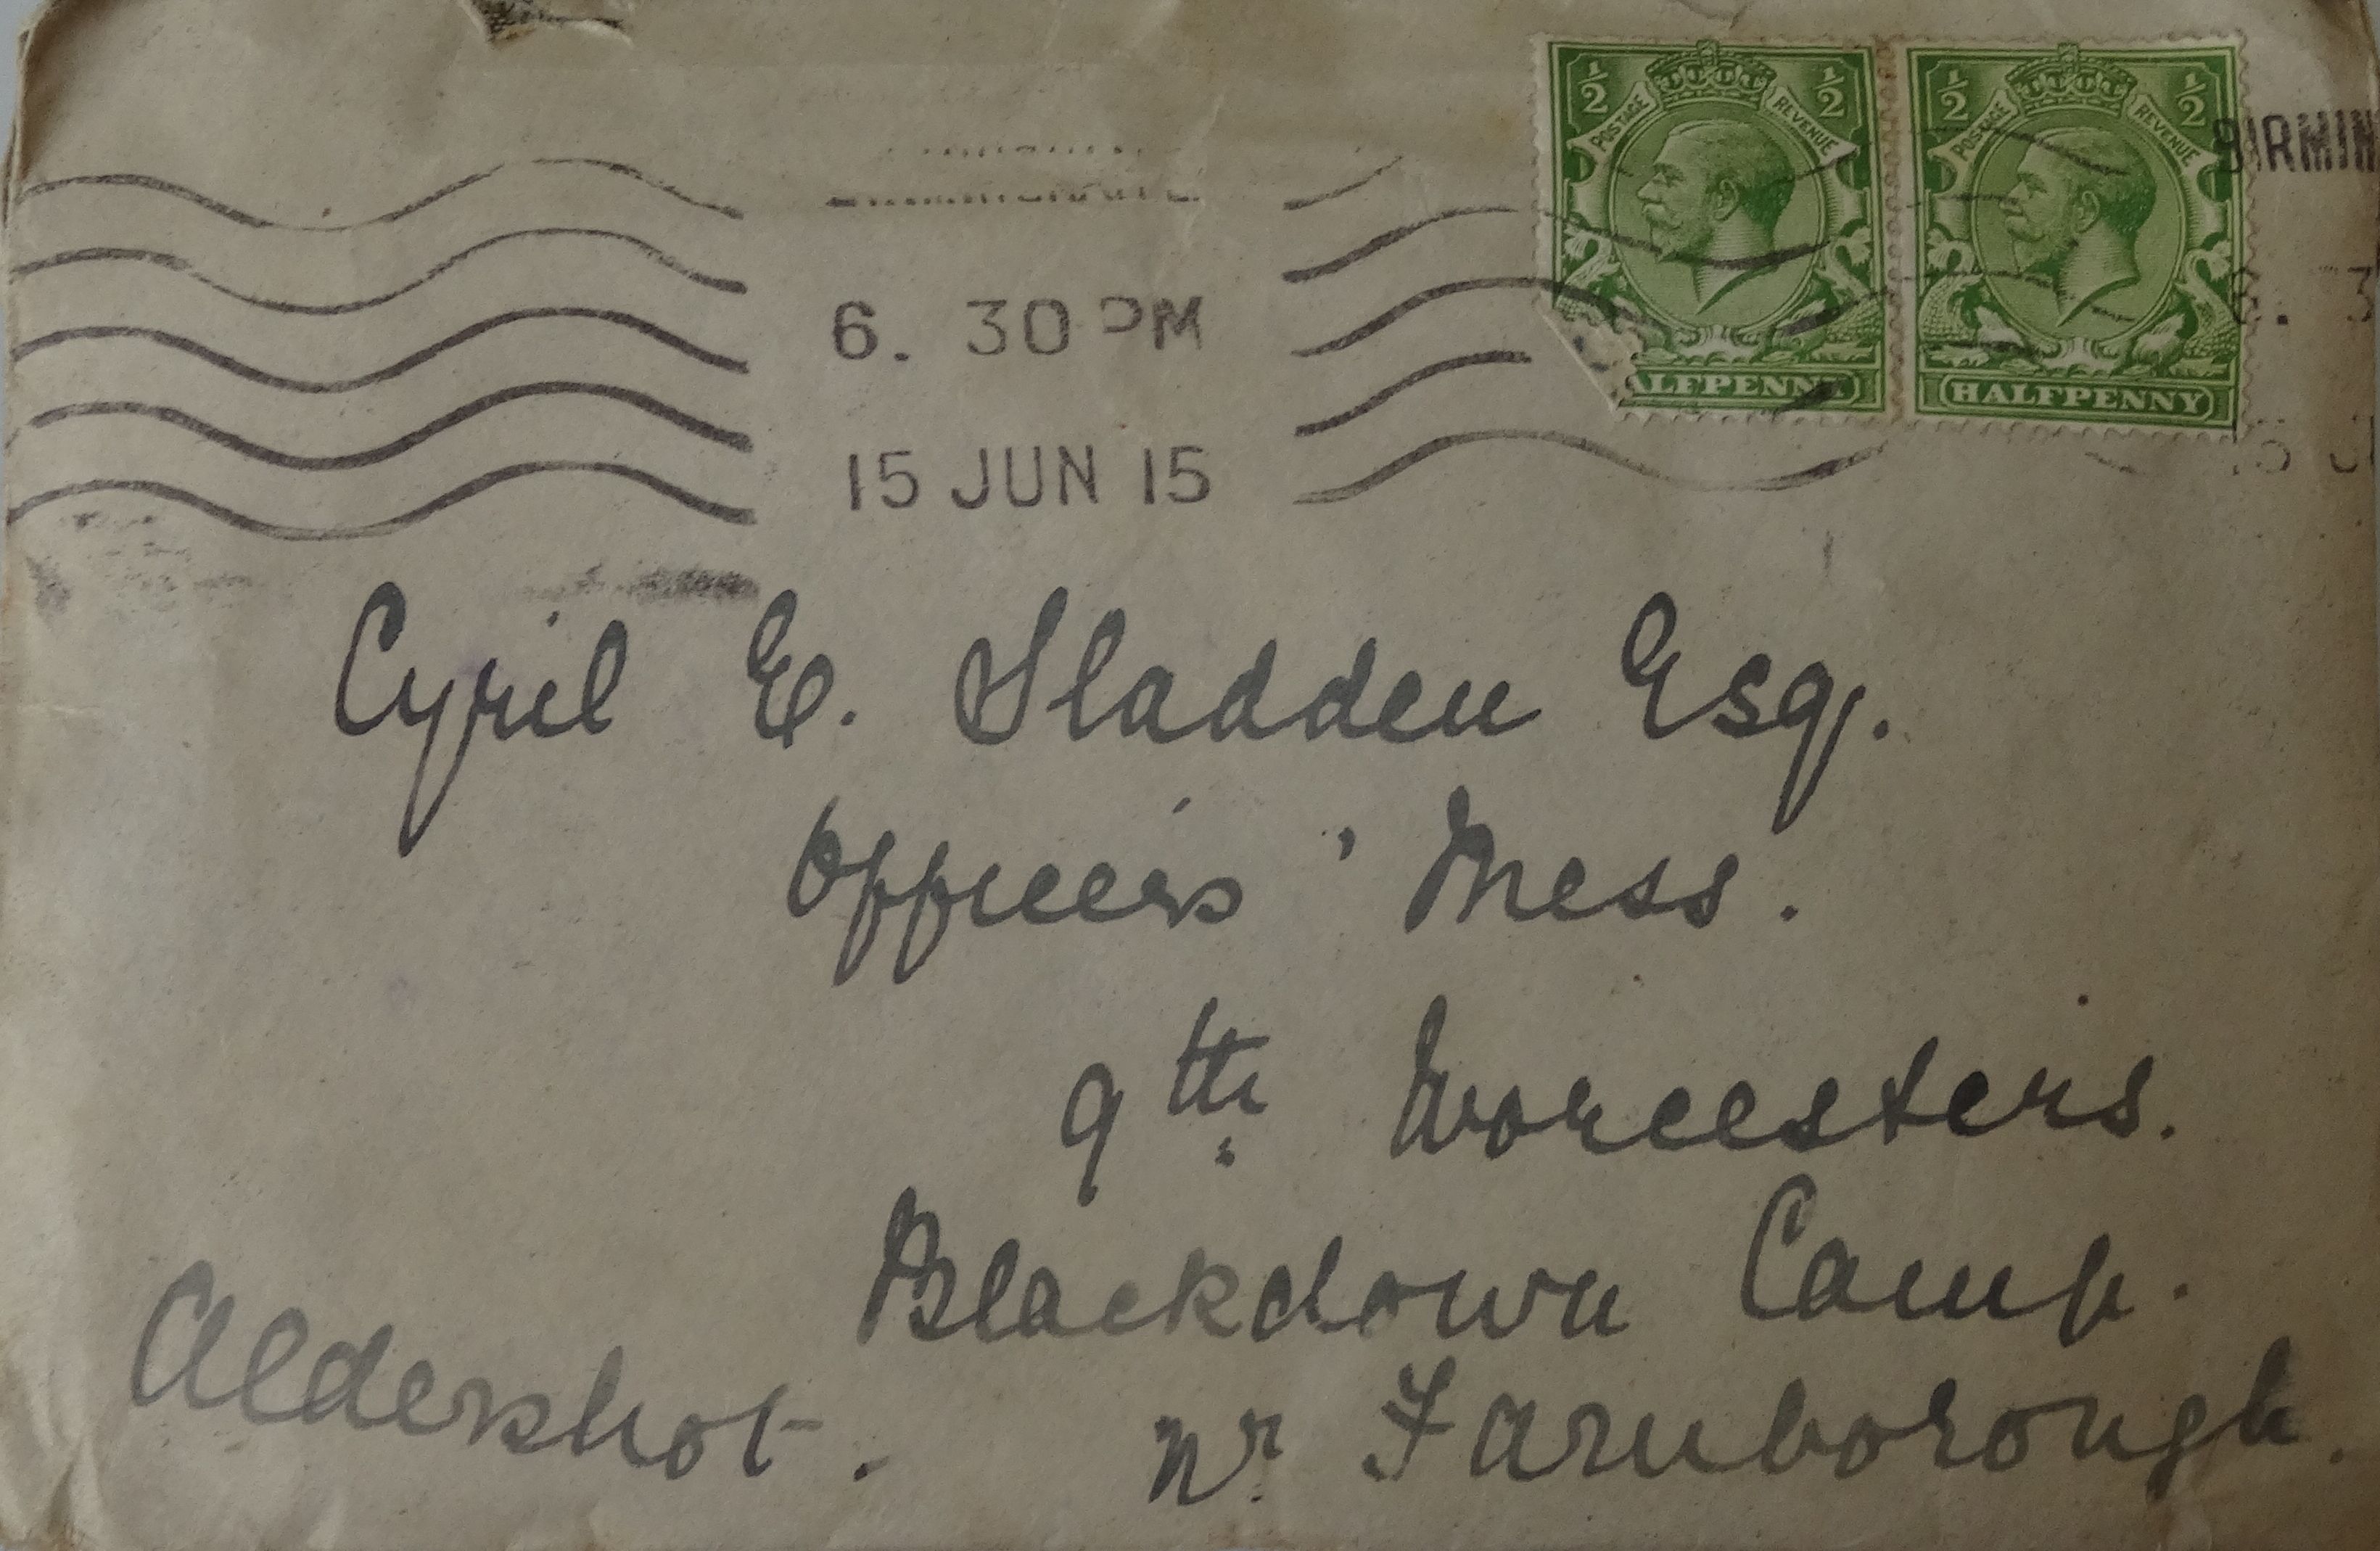 ½ POSTAGE REVENUE ½
½ POSTAGE REVENUE ½
BIRMIN
6. 30 PM
6. 3
15 JUN 15
ALFPENNY
HALFPENNY
Cyril E. Sladden Esq.
Officers' Mess.
9th Worcesters.
Blackdown Camp.
Nr Farnborough.
Aldershot.